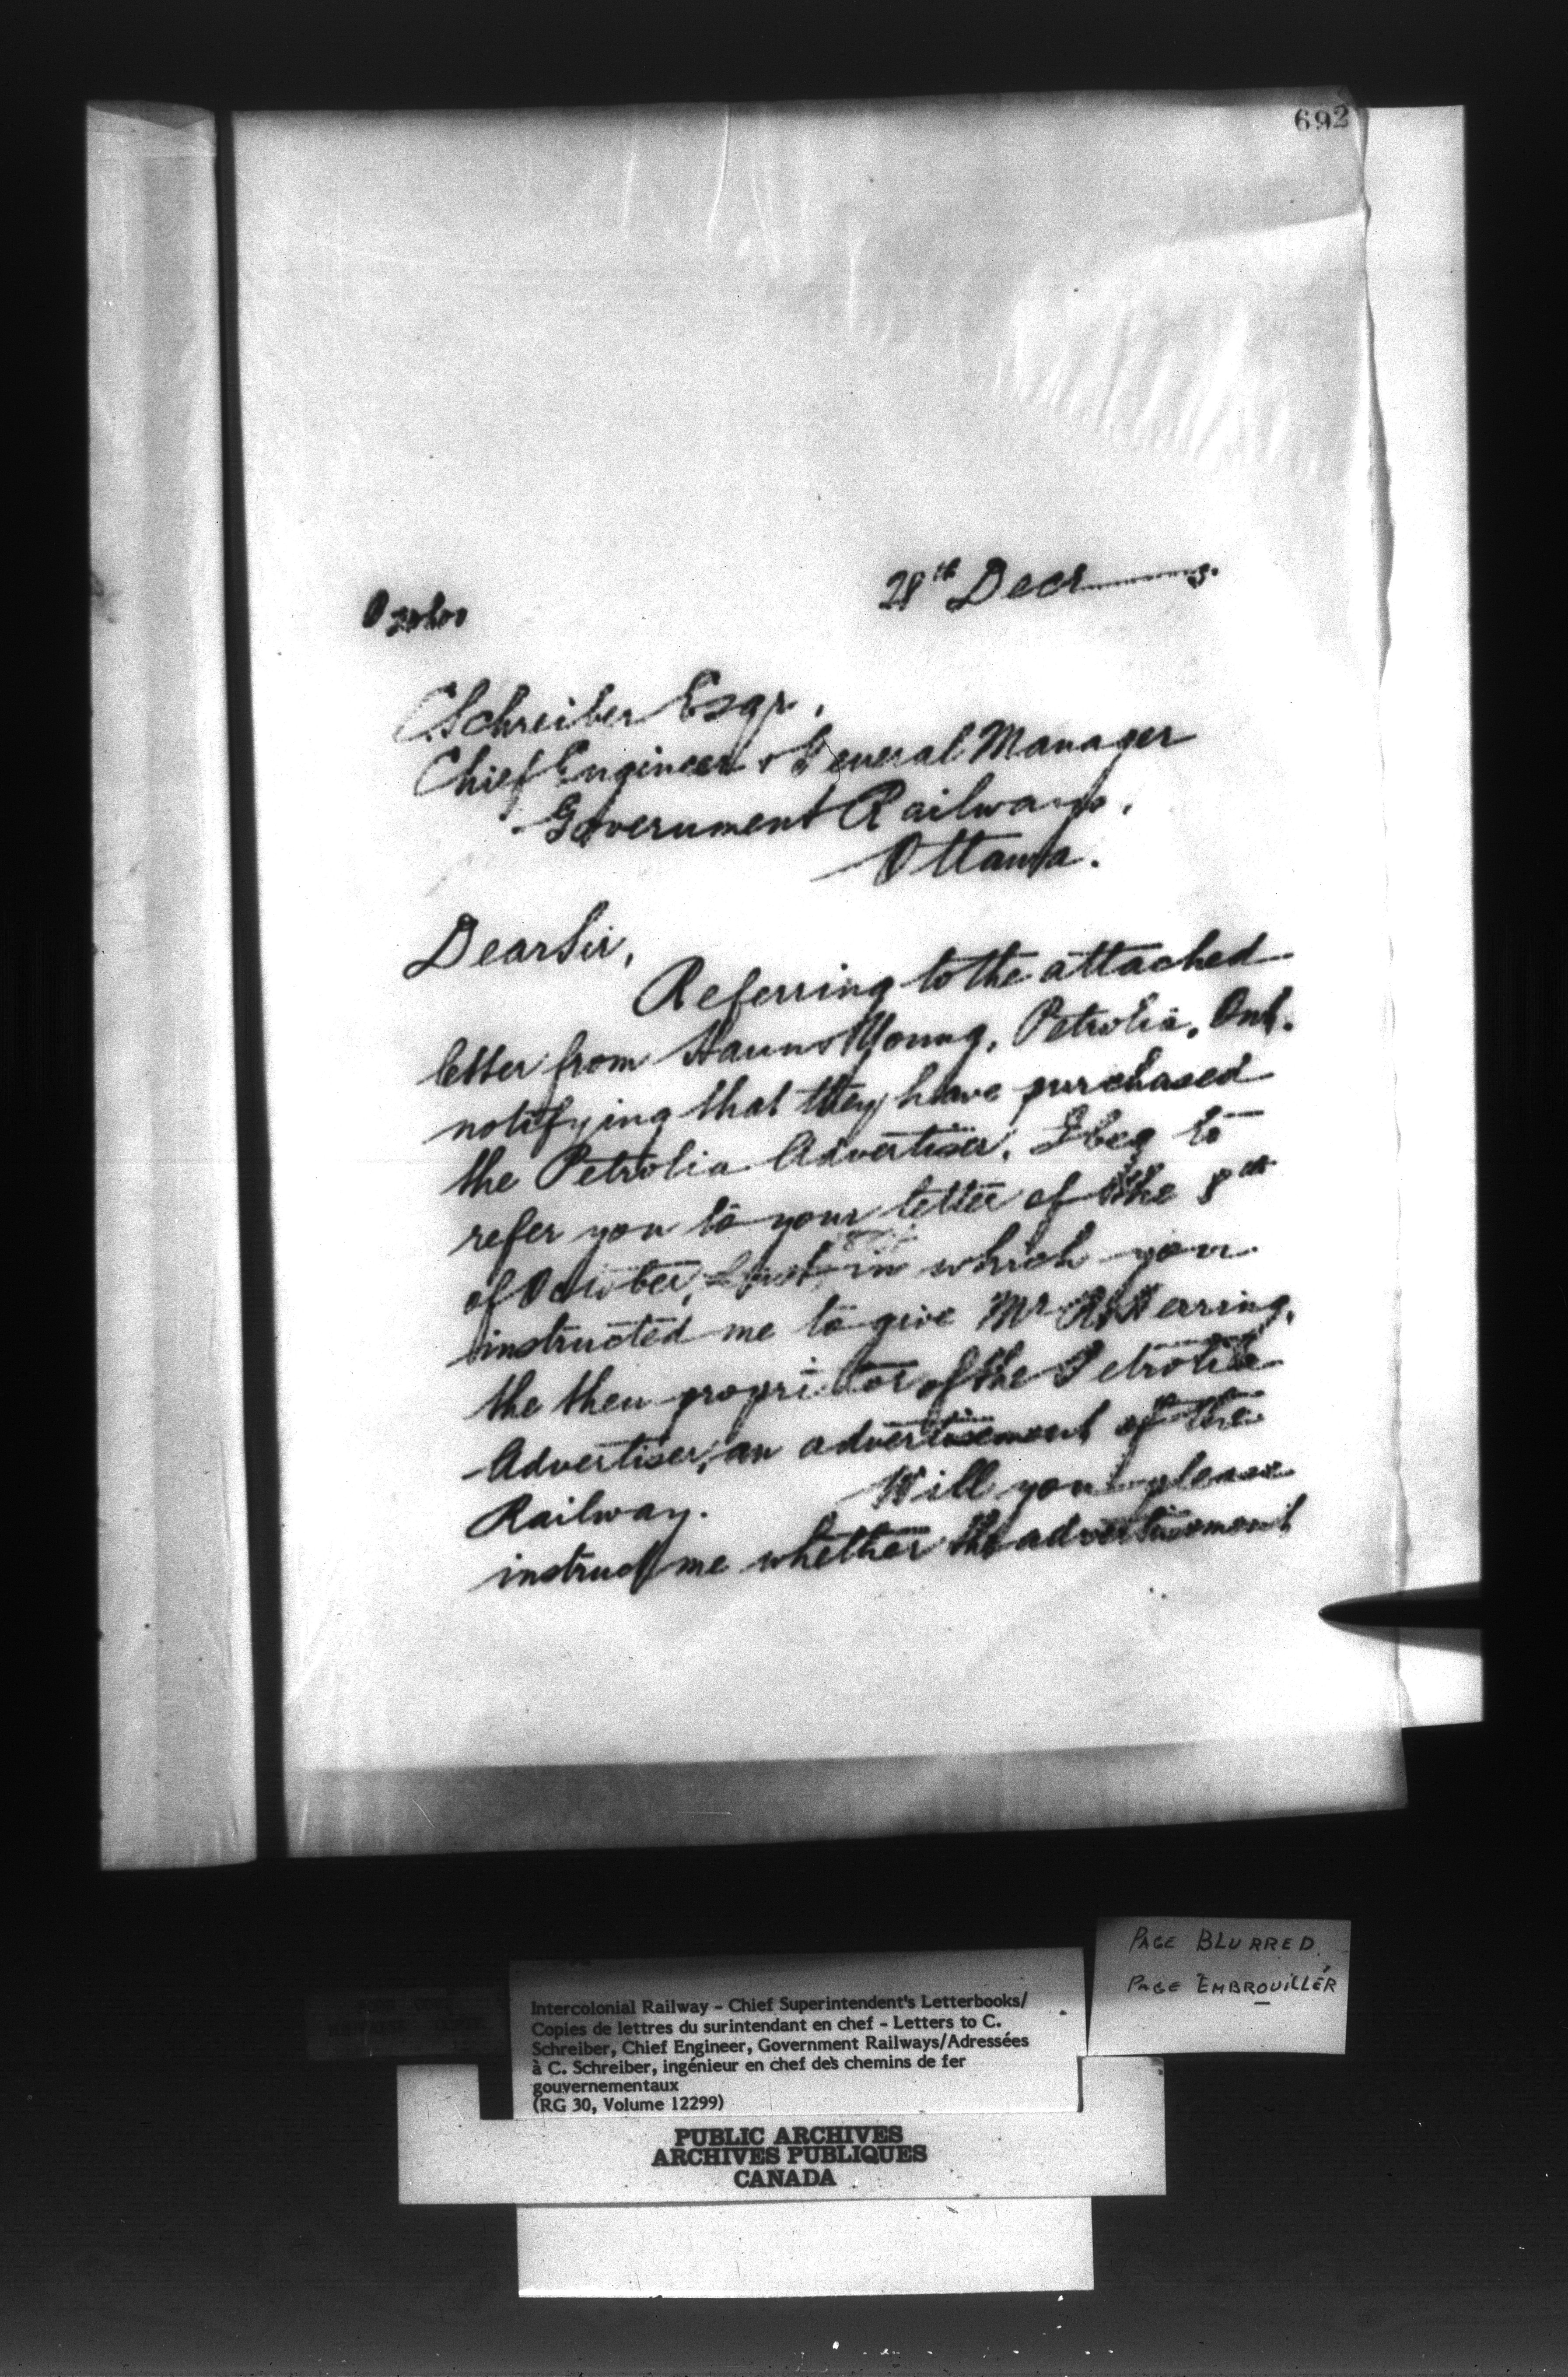 692
28th Decr
C. Schreiber Esqr.,
Chief Engineer & General Manager
Government Railways,
Ottawa.
Dear Sir,
Referring to the attached
letter from Young, Petrolia, Ont.
notifying that they have purchased
the Petrolia Advertiser, I beg to
refer you to your letter of the 8th
of October, in which you
instructed me to give Mr Herring,
the then proprietor of the Petrolia
Advertiser, an advertisement of the
Railway. Will you please
instruct me whether the advertisement
PAGE BLURRED
PAGE EMBROUILLÉR
Intercolonial Railway - Chief Superintendent's Letterbooks/
Copies de lettres du surintendant en chef - Letters to C.
Schreiber, Chief Engineer, Government Railways/Adressées
à C. Schreiber, ingénieur en chef des chemins de fer
gouvernementaux
(RG 30, Volume 12299)
PUBLIC ARCHIVES
ARCHIVES PUBLIQUES
CANADA